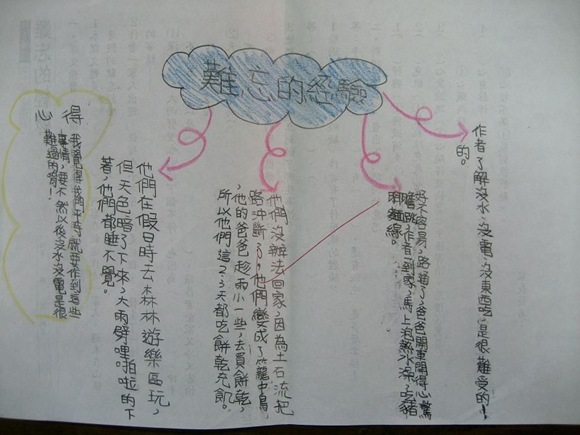 難忘的經驗
作者了解沒水、沒電、沒東西吃，是很難受的！
的。
好不容易，路通了，爸爸開車開得心驚
膽跳，作者一到家，馬上泡熱水澡，吃豬
腳麵線。
他們沒辦法回家，因為土石流把
路沖斷了，他們變成了籠中鳥，
他的爸爸趁雨小一些，去買餅乾，
所以他們這2、3天都吃餅乾充飢。
他們在假日時去森林遊樂區玩，
但天色暗了下來，大雨劈哩啪啦的下
著，他們都睡不覺。
心得
我覺得我們平時就要作到這些
事情，要不然以後沒水沒電是很
難過的唷！